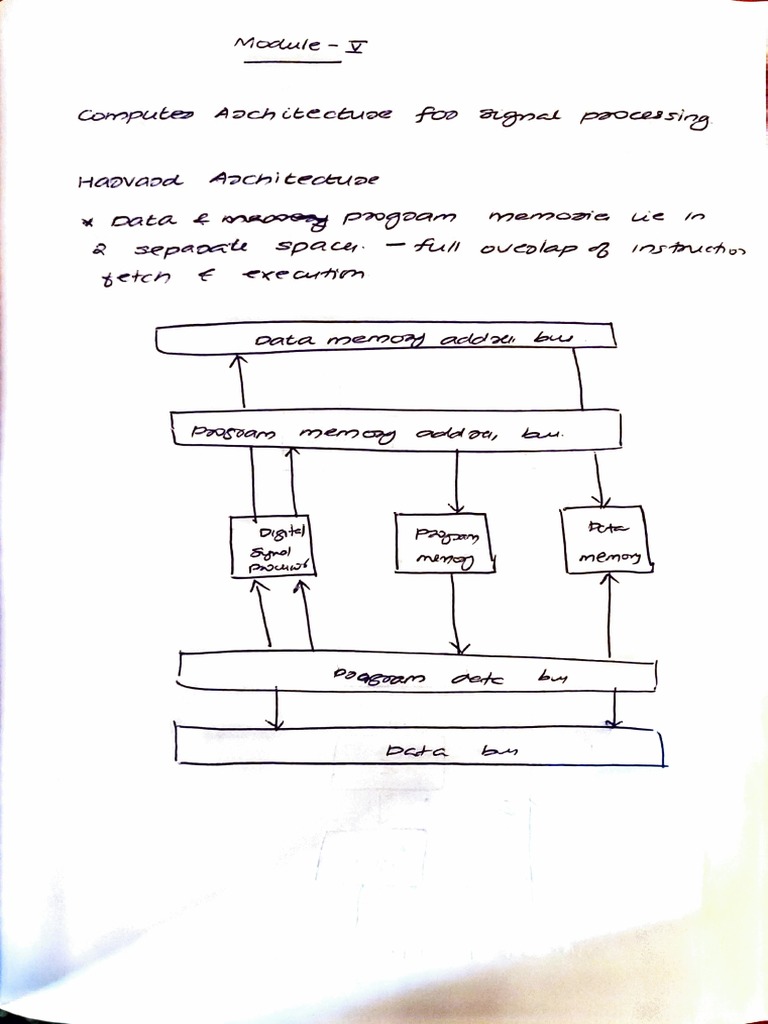 Module - V
Computer Architecture for signal processing.
Harvard Architecture
* Data & memory program memories lie in
2 separate spaces. - full overlap of instruction
fetch & execution
Data memory address bus
Program memory address bus.
Digital
Signal
Processor
Program
memory
Data
memory
Program data bus
Data bus